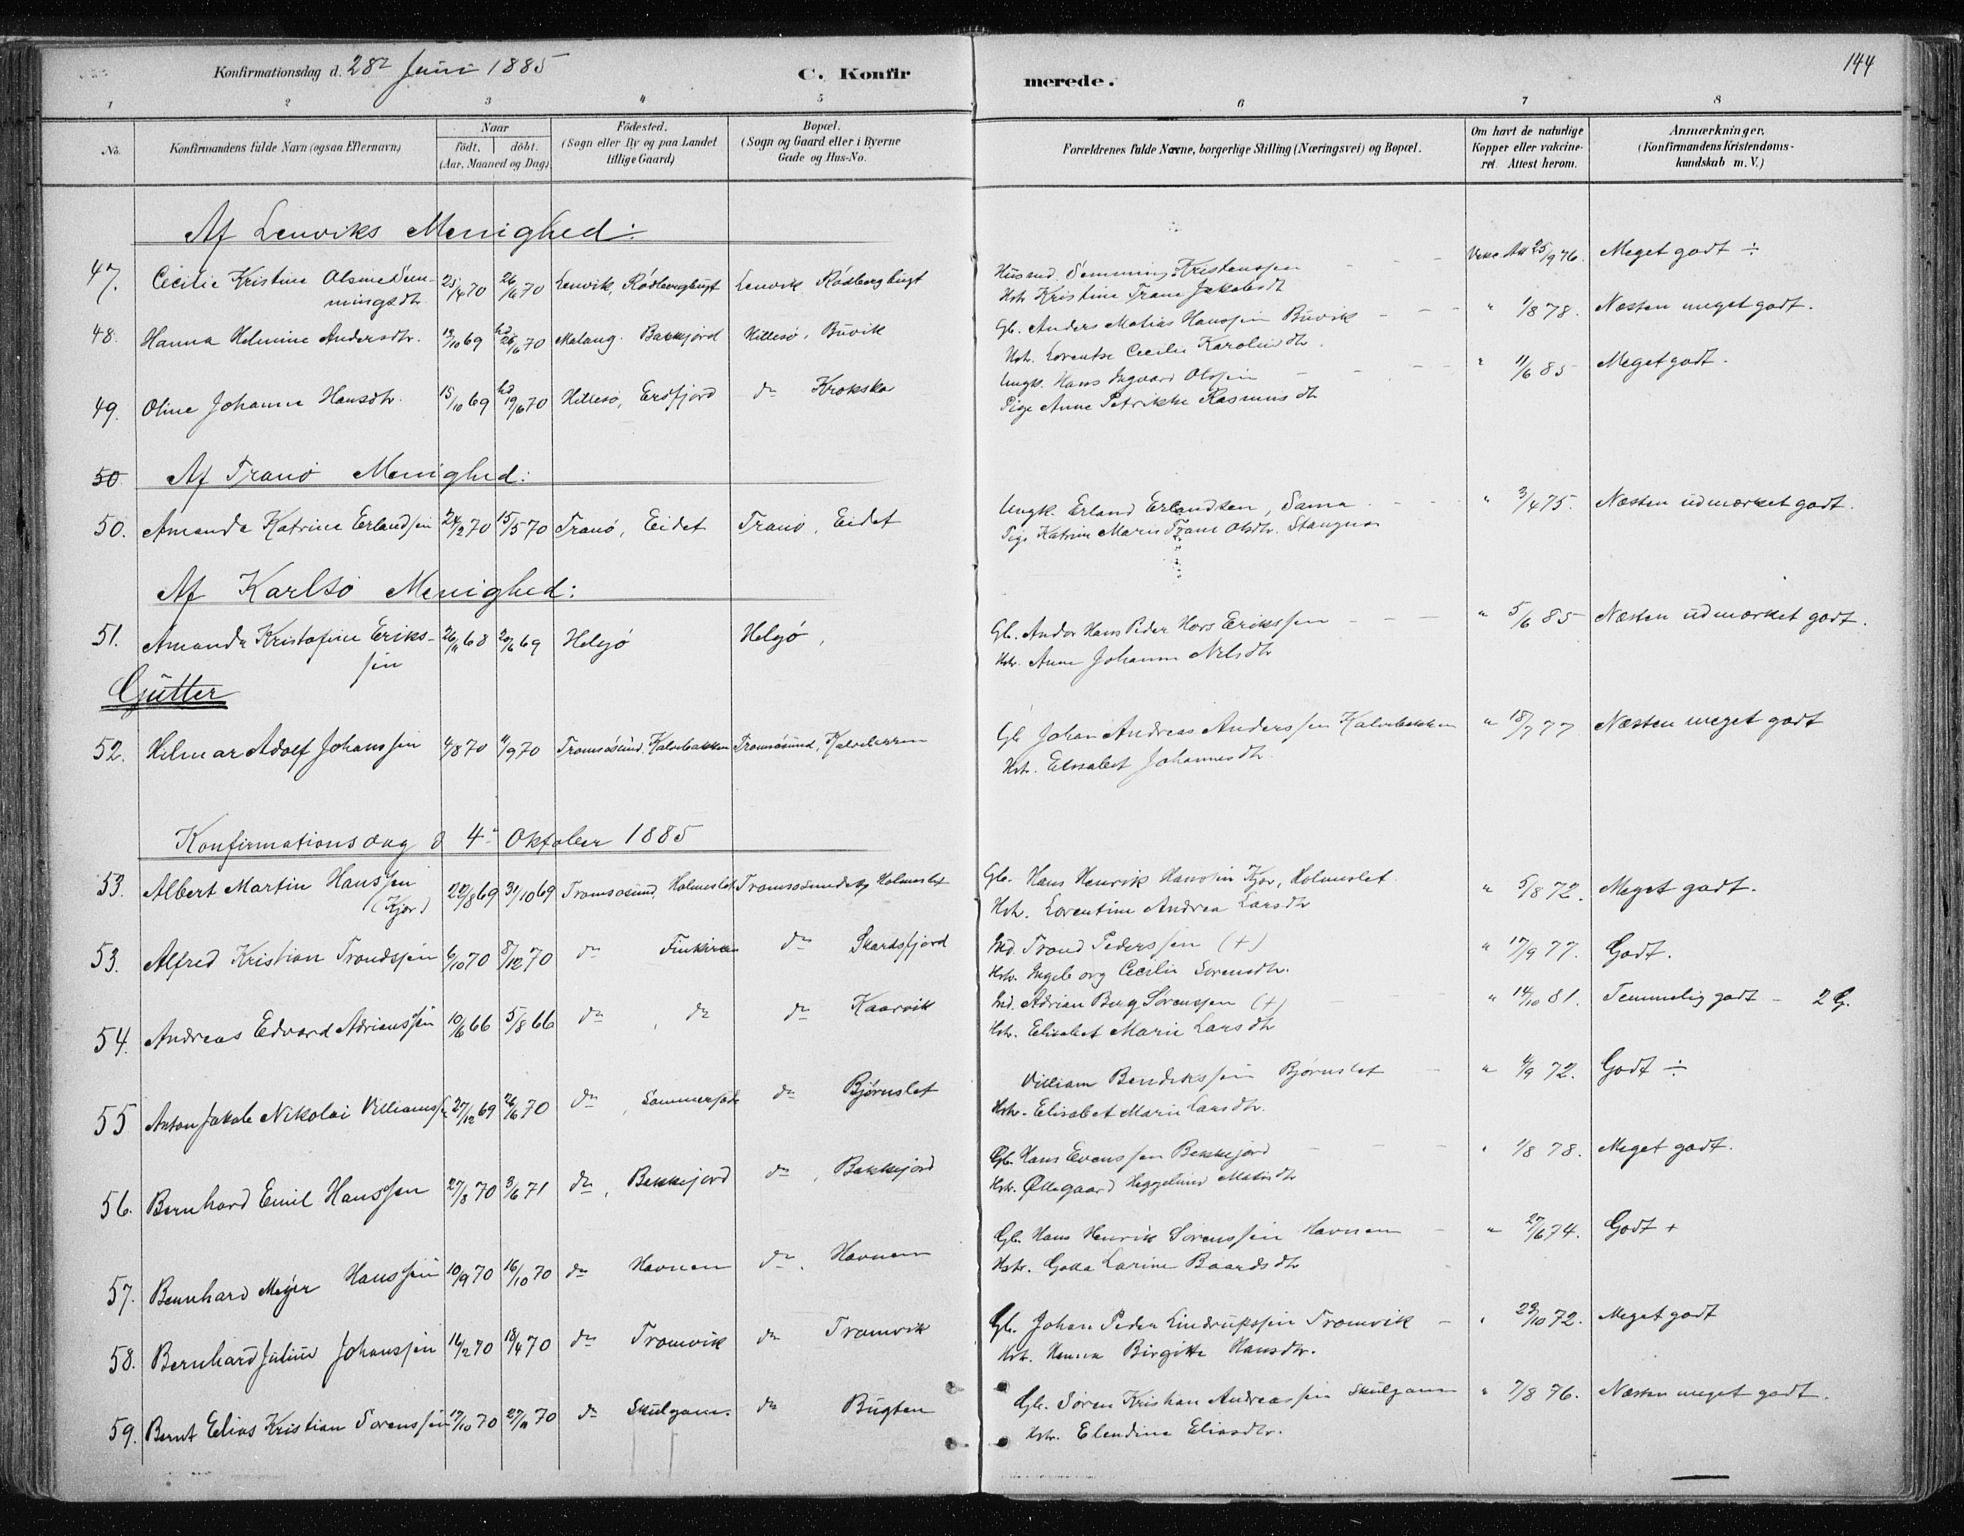 Konfirmationsdag d. 28de Juni 1885
C. Konfirmerede.
144
1 2 3 4 5 6 7 8
No.
Konfirmandens fulde Navn (ogsaa Efternavn)
Naar
født. døbt.
(Aar, Maaned og Dag)
Fødested.
(Sogn eller By og paa Landet
tillige Gaard)
Bopæl.
(Sogn og Gaard eller i Byerne
Gade og Hus-No.
Forældrenes fulde Navne, borgerlige Stilling (Næringsvei) og Bopæl.
Om havt de naturlige
Kopper eller vakcine-
ret Attest herom.
Anmærkninger.
(Konfirmandens Kristendoms-
kundskab m. V.)
Af Lenviks Menighed:
47. Cecilie Kristine 25/4 70 26/6 70 Lenvik, Rødbergbugt Lenvik Rødbergbugt Husmd. Kristenssen 25/9 76. Meget godt ÷
mingsdtr Hstr Kristine Trane Jakobsdt
48. Hanna Helmine Andersdtr. 13/10 69 hd 26/6 70 Malang. Bakkejord Hillesø, Buvik Gb. Anders Matias Hanssen Buvik " 1/8 78. Næsten meget godt.
Hstr. Lorentse Cecilie Karolius dtr.
49. Oline Johanne Hansdtr. 15/10 69 hd 19/6 70 Hillesø, Ersfjord do Krokskar Ungk. Hans Ingvard Olssen " 11/6 85 Meget godt.
Pige Anne Petrikke Rasmus dtr
50 Af Tranø Menighed:
50. Amanda Katrine Erlandsen 24/2 70 15/5 70 Tranø, Eidet Tranø, Eidet Ungk. Erland Erlandsen, Sama " 3/4 75. Næsten udmærket godt.
Pige Katrine Marie Trane Olsdtr. Stangnes
Af Karlsø Menighed:
51. Amanda Kristofine Eriks- 26/11 68 20/6 69 Helgø Helgø, Gb. Andor Hans Peder Hors Erikssen " 5/6 85 Næsten udmærket godt.
sen Hstr. Anne Johanne Nilsdtr
Gutter
52. Hilmar Adolf Johanssen 4/8 70 11/9 70 Tromsøsund, Kalvebakken Tromsøsund, Gb Johan Andreas Anderssen Kalvebakken " 18/7 77 Næsten meget godt
Hstr. Elisabet Johannesdtr.
Konfirmationsdag d 4de Oktober 1885
53. Albert Martin Hanssen 22/8 69 31/10 69 Tromsøsund, Holmeslet Tromsøsundet, Holmeslet Gb. Hans Henrik Hanssen Kjær, Holmeslet. " 5/8 72. Meget godt.
(Kjær) Hstr. Lorentine Andrea Larsdtr
53. Alfred Kristian Trondssen 6/10 70 8/12 70 do Finkirken do Skardsfjord Ind. Trond Pederssen (+) " 17/9 77. Godt.
Hstr. Ingeborg Cecilie Sørensdtr.
54. Andreas Edvard Adrianssen 10/6 66 5/8 66 do, do do Kaarvik Ind. Adrian Berg Sørenssen (+) " 14/10 81. Temmelig godt - 2 G.
Hstr. Elisabet Marie Larsdtr
55 Anton Jakob Nikolai Villiamss. 27/12 69 26/6 70 do, Sommersæde do Bjørnslet Villiam Bendikssen Bjørnslet " 4/9 72. Godt ÷
Hstr. Elisabet Marie Larsdtr.
56. Bernhard Emil Hanssen 27/8 70 3/6 71 do, Bekkejord do, Bakkejord Gb. Hans Evenssen Bekkejord " 1/8 78. Meget godt.
Hstr. Ollegaard Heggelund Matisdtr
57. Bernhard Mejer Hanssen 10/9 70 16/10 70 do Havnen do. Havnen Gb. Hans Henrik Sørenssen Havnen " 27/6 74. Godt +
Hstr. Golla Larine Baardsdtr
58. Bernhard Julius Johanssen 16/2 70 18/4 70 do Tromvik do Tromvik Gb. Johan Peder Lindrupssen Tromvik " 23/10 72. Meget godt
Hstr. Hanna Birgitte Hansdtr.
59. Bernt Elias Kristian Sørenssen 17/10 70 27/11 70 do Skulgam. do Bugten Gb. Søren Kristian Andreassen Skulgam " 7/8 76. Næsten meget godt.
Hstr. Elendine Eliasdtr.